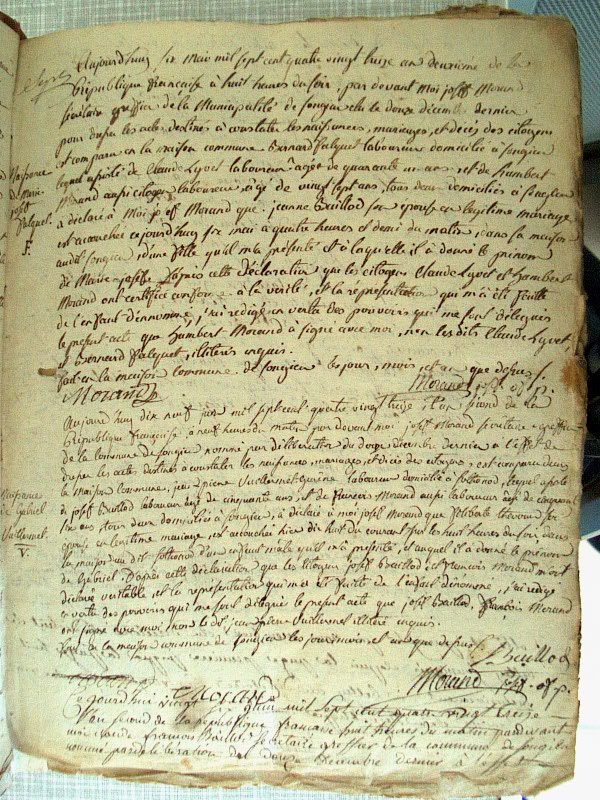 Aujourd'huy six mai mil sept cent quatre vingt treize an deuxieme de la
République française à huit heures du soir, par devant Moi joseph Morand
secrétaire greffier de la Municipalité de songieu élu le douze décembre dernier
pour dresser les actes destinés a constater les naissances, mariages, et décès des citoyens
est comparu en la maison commune Bernard laboureur domicilié à songieu
lequel assisté de Claude Lyvet laboureur agé de quarante ans, et de humbert
Morand aussi citoyen laboureur agé de vingt sept ans, tous deux domiciliés à songieu
a déclaré à Moi joseph Morand que jeanne Baillod son epouse en legitime mariage
est accouchée cejourd'huy six mai a quatre heures et demi du matin, dans sa maison
audit songieu, d'une fille qu'il m'a présenté et à laquelle il à donné le prénom
de Marie josephe. D'après cette déclaration que les citoyens Claude Lyvet et humbert
Morand ont certifié conforme à la vérité, et la représentation qui m'a été faitte
de l'enfant dénommé, j'ai rédigé en vertu des pouvoirs qui me sont délégués
le présent acte que humbert Morand à signé avec moi, non les dits Claude Lyvet,
et Bernard illiterés enquis.
fait en la maison commune de songieu les jour, mois, et an que dessus.
Morand
Morand
Naissance
de Marie
F.
Aujourd'huy dix neuf juin mil sept cent quatre vingt treize, l'an second de la
République française, à neuf heures du matin par devant moi joseph Morand secretaire greffier
de la commune de songieu nommé par déliberation du douze decembre dernier a l'effet de
dresser les actes destinés a constater les naissances, mariages, et décès des citoyens, est comparu dans
la maison commune, jean pierre laboureur domicilié a sothonod, lequel assisté
de joseph Baillod laboureur agé de cinquante ans, et de François Morand aussi laboureur agé de cinquante
trois ans, tous deux domiciliés à songieu, a déclaré à moi joseph Morand que son
epouse, en legitime mariage est accouchée hier dix huit du courant sur les huit heures du soir dans
sa maison au dit sothonod d'un enfant male qu'il m'a présenté, et auquel il a donné le prénom
de Gabriel. D'après cette déclaration que les citoyens joseph Baillod, et François Morand m'ont
déclaré veritable et la représentation qui m'a été faitte de l'enfant dénommé, j'ai redigé
en vertu des pouvoirs qui me sont délégués le présent acte que joseph Baillod, François Morand
ont signé avec moi, non le dit jean pierre illiteré enquis.
fait en la maison commune de songieu les jour mois et an que dessus.
Baillod
Morand
Naissance
de Gabriel
V.
Cejourd'hui vingt juin mil sept cent quatre vingt treize
l'an second de la république française huit heures du matin pardevant
moi Baillod, secrétaire greffier de la commune de songieu
nommé par délibération du douze décembre dernier à l'effet